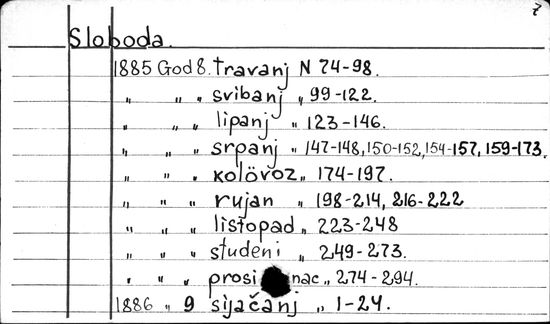 7
Sloboda.
1885 God 8. travanj N 74-98.
„ „ „ svibanj „ 99-122.
„ „ „ lipanj „ 123-146.
„ „ „ srpanj „ 147-148, 150-152, 154-157, 159-173.
„ „ „ kolövoz „ 174-197.
„ „ „ rujan „ 198-214, 216-222
„ „ „ listopad „ 223-248
„ „ „ studeni „ 249-273.
„ „ „ prosi nac „ 274-294.
1886 „ 9 siječanj „ 1-24.